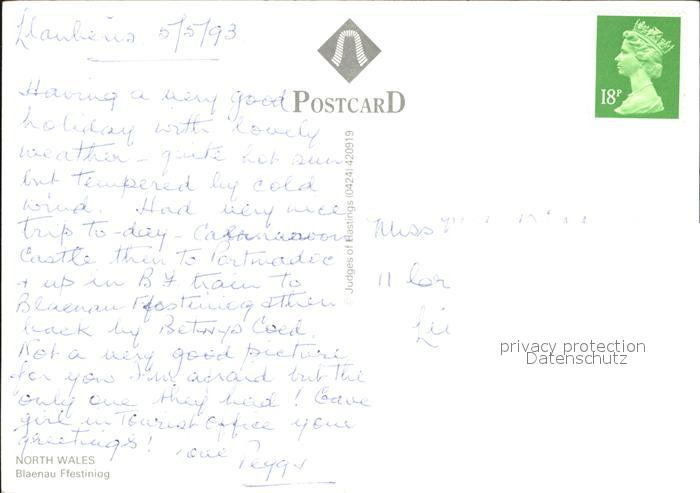 Llanberis 5/5/93
POSTCARD
18P
Having a very good
holiday with lovely
weather – quite hot sun
but tempered by cold
wind. Had very nice
trip to-day – Caernarvon
Castle then to Portmadoc
+ up in B F train to
Blaenau Ffestiniog & then
back by Betwys Coed.
Not a very good picture
for you I'm afraid but the
only one they had! Gave
girl in Tourist Office your
greetings! love Peggy
© Judges of Hastings (0424) 420919
Miss
11
privacy protection
Datenschutz
NORTH WALES
Blaenau Ffestiniog